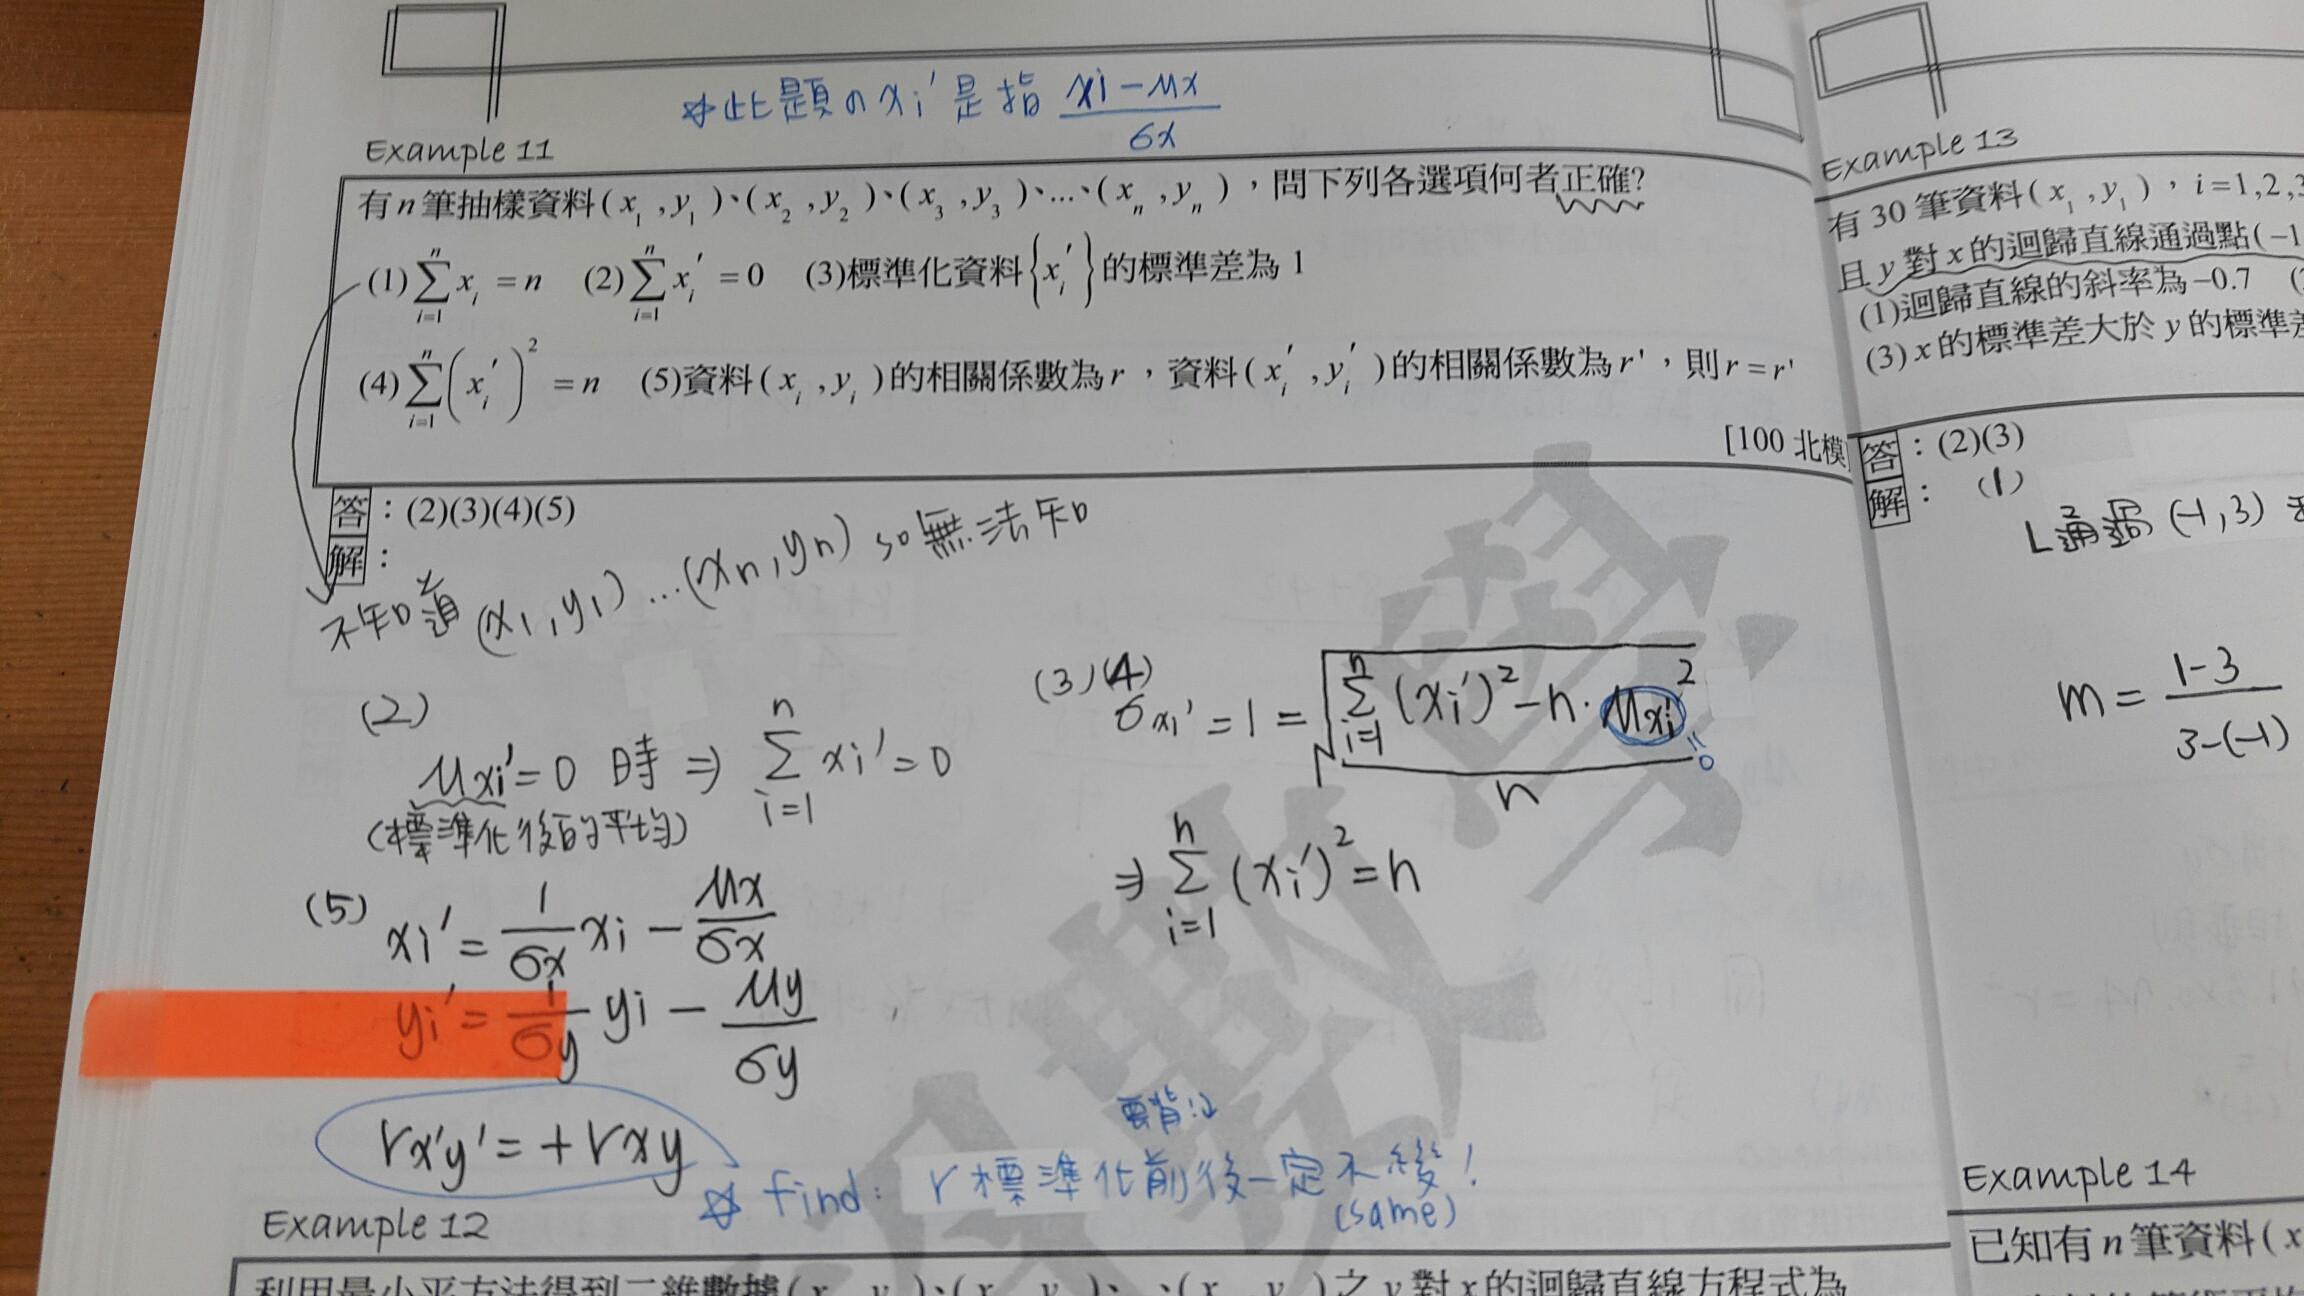 ☆此題の xi' 是指 (xi－μx)/σx
Example 11
有n筆抽樣資料(x₁,y₁)、(x₂,y₂)、(x₃,y₃)、…、(xₙ,yₙ)，問下列各選項何者正確?
(1)∑ᵢ₌₁ⁿ xᵢ = n (2)∑ᵢ₌₁ⁿ xᵢ' = 0 (3)標準化資料{xᵢ'}的標準差為 1
(4)∑ᵢ₌₁ⁿ(xᵢ')² = n (5)資料(xᵢ,yᵢ)的相關係數為r，資料(xᵢ',yᵢ')的相關係數為r'，則r=r'
[100 北模
答：(2)(3)(4)(5)
解：
不知道 (x1,y1)…(xn,yn) so無法知
(2)
μxi'=0 時 ⇒ ∑ᵢ₌₁ⁿ xi'=0
(標準化後的平均)
(3)(4)
σxi' = 1 = √((∑ᵢ₌₁ⁿ(xi')²－n·μxi'²)/n)
0
⇒ ∑ᵢ₌₁ⁿ(xi')² = n
(5) xi' = 1/σx xi － μx/σx
yi' = 1/σy yi － μy/σy
rx'y' = + rxy
要背!!
☆ find: r 標準化前後一定不變!
(same)
Example 12
利用最小平方法得到二維數據(x y )、(x y )、 、(x y )之y對x的迴歸直線方程式為
數學
Example 13
有 30 筆資料(x₁,y₁)，i=1,2,3
且y對x的迴歸直線通過點(−1
(1)迴歸直線的斜率為−0.7 (
(3)x的標準差大於y的標準差
答：(2)(3)
解： (1)
L通過 (-1,3)
m = (1-3)/(3-(-1))
Example 14
已知有n筆資料(x